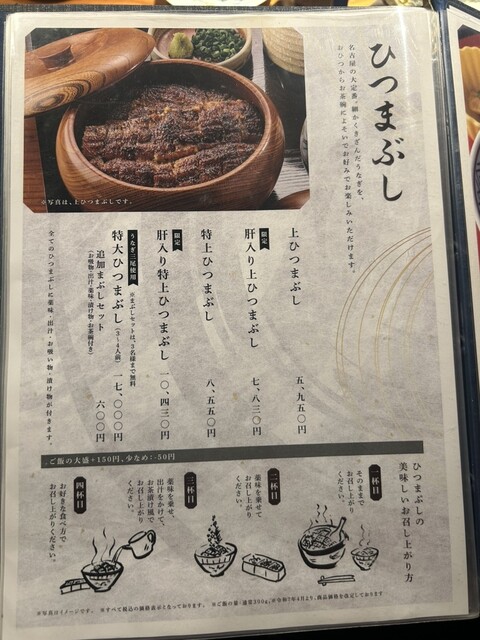 ひつまぶし
名古屋の大定番。細かくきざんだうなぎを、
おひつからお茶碗によそいでお好みでお楽しみいただけます。
※写真は、上ひつまぶしです。
上ひつまぶし 五、九五〇円
限定 肝入り上ひつまぶし 七、八三〇円
特上ひつまぶし 八、五五〇円
限定 肝入り特上ひつまぶし 一〇、四三〇円
うなぎ三尾使用 ※まぶしセットは、3名様まで無料
特大ひつまぶし(3～4人前) 一七、〇〇〇円
追加まぶしセット 六〇〇円
(お吸物・出汁・薬味・漬け物・お茶碗付き)
全てのひつまぶしに薬味・出汁・お吸い物・漬け物が付きます。
ご飯の大盛+150円、少なめ:-50円
ひつまぶしの
美味しいお召し上がり方
一杯目
そのままで
お召し上がり
ください。
二杯目
薬味を乗せて
お召し上がり
ください。
三杯目
薬味を乗せ、
出汁をかけて、
お茶漬け風で
お召し上がり
ください。
四杯目
お好きな食べ方で
お召し上がりください。
※写真はイメージです。 ※すべて税込の価格表示となっております。 ※ご飯の量:通常300g ※令和7年4月より、商品価格を改定しております